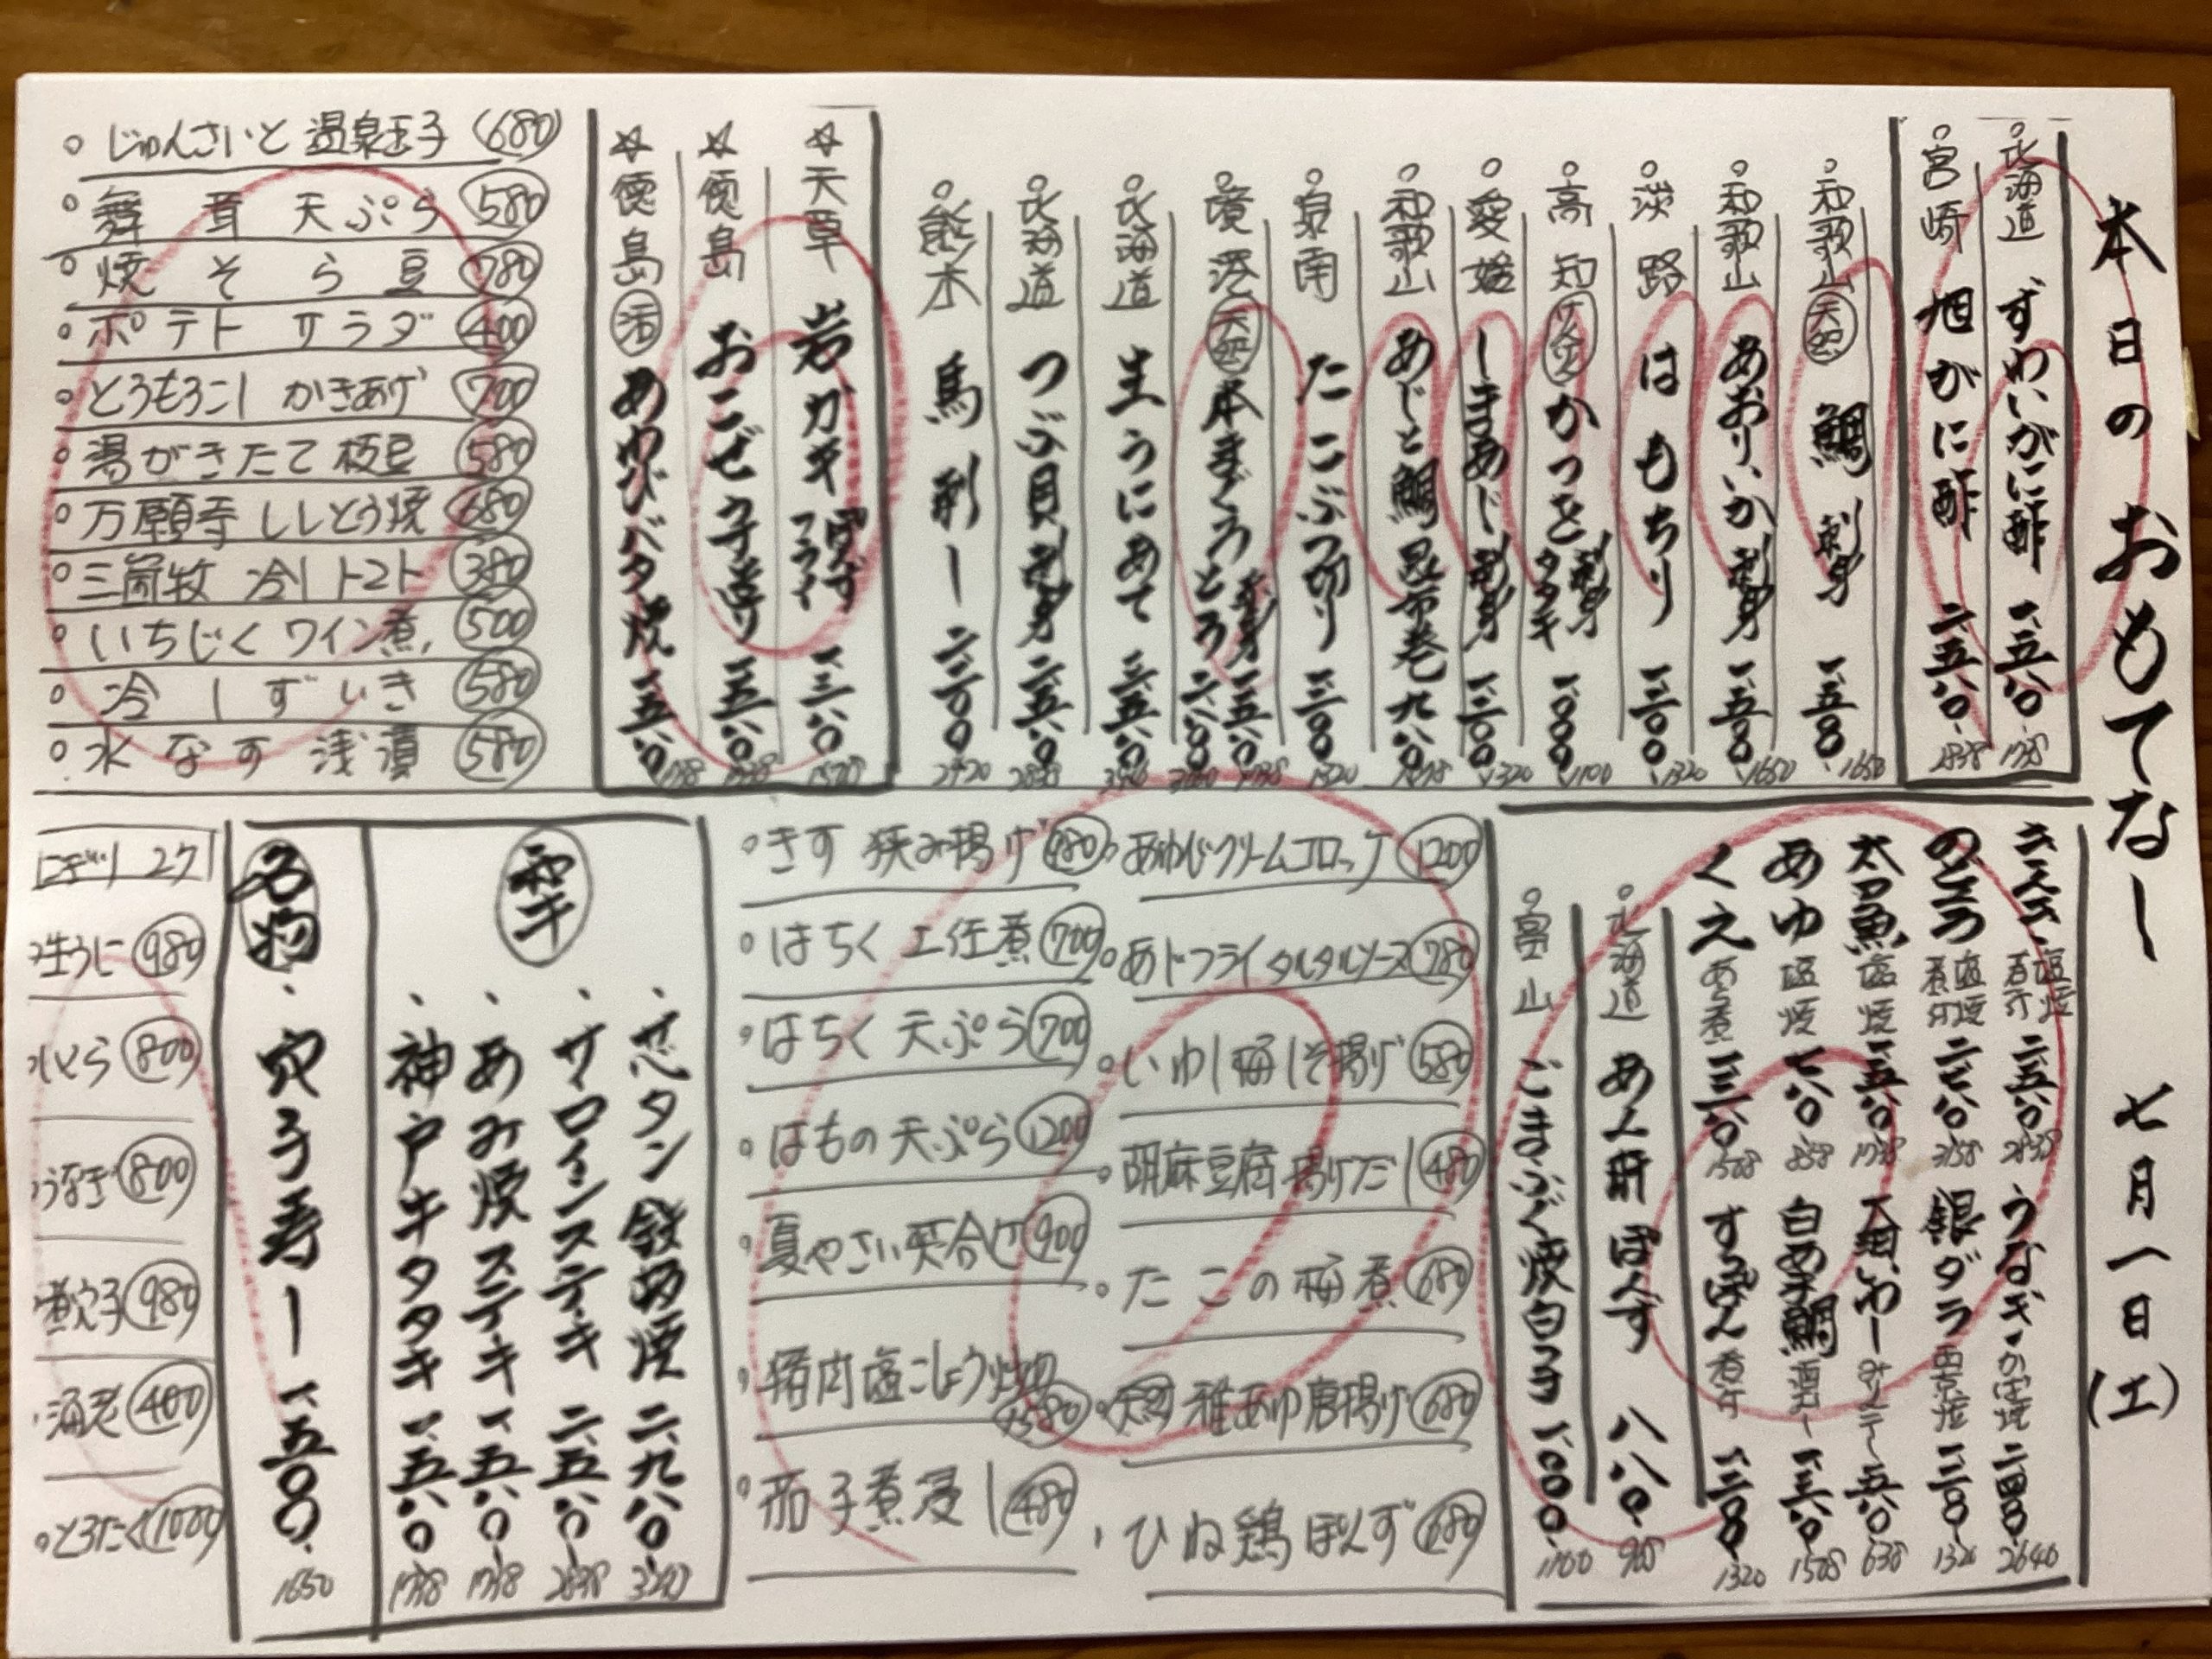 本日のおもてなし 七月一日(土)
北海道 ずわいがに酢 一、五八〇 1738
宮崎 旭がに酢 二、五八〇 2838
和歌山 天然 鯛 刺身 一、五〇〇 1650
和歌山 あおりいか 刺身 一、五〇〇 1650
淡路 はもちり 一、二〇〇 1320
高知 かつを 刺身 タタキ 一、〇〇〇 1100
愛媛 しまあじ 刺身 一、二〇〇 1320
和歌山 あじと鯛 昆布巻 九八〇
泉南 たこぶつ切り 一、二〇〇 1320
境港 天然 本まぐろ 刺身 一、五八〇 とろ
北海道 生うにあて 三、五八〇
北海道 つぶ貝 刺身 二、五八〇 2838
熊本 馬刺し 二、二〇〇 2420
☆天草 岩ガキ ぽんず フライ 一、三八〇
☆徳島 おこぜ 唐揚げ 一、五八〇
☆徳島 活 あわびバタ焼 一、五八〇
じゅんさいと温泉玉子 680
舞茸天ぷら 580
焼そら豆 780
ポテトサラダ 400
とうもろこしかきあげ 700
湯がきたて枝豆 580
万願寺ししとう焼 680
三箇牧 冷しトマト 380
いちじくワイン煮 500
冷しずいき 580
水なす浅漬 580
きんき 塩焼 煮付 二、五八〇 2838
のどぐろ 塩焼 煮付
太刀魚 塩焼 一、五八〇 1738
あゆ 塩焼 七八〇 858
くえ あら煮
うなぎ かば焼 二、四〇〇 2640
銀ダラ 西京焼 一、二〇〇 1320
大羽いわし 五八〇 638
白あま鯛 酒むし
すっぽん 煮付 一、二〇〇 1320
北海道 あん肝ぽんず 八八〇 968
富山 ごまふぐ焼白子 一、〇〇〇 1100
あわびクリームコロッケ 1200
あじフライタルタルソース 780
いわし梅しそ揚げ 580
胡麻豆腐揚げだし 480
たこの梅煮 680
天然 稚あゆ唐揚げ 680
ひね鶏ぽんず 680
きす挟み揚げ
はちく土佐煮 700
はちく天ぷら 700
はもの天ぷら 1200
夏やさい炊合せ 900
猪肉塩こしょう
茄子煮浸し 480
芯タン鉄板焼 二、九八〇
サーロインステーキ 二、五八〇 2838
あみ焼ステーキ 一、五八〇 1738
神戸牛タタキ 一、五八〇 1738
名物 穴子寿し 一、五〇〇 1650
にぎり 2ケ
生うに 980
とろ 800
うなぎ 800
煮穴子 980
海老 400
とろたく